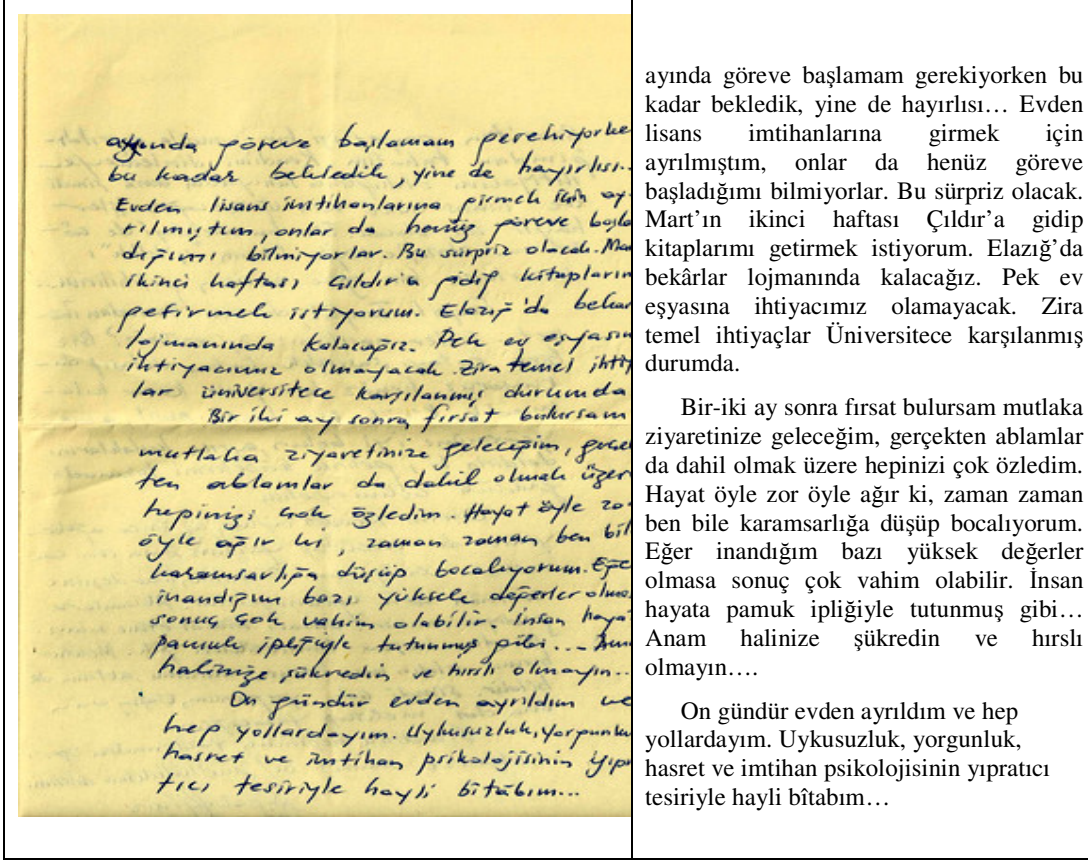 ayında göreve başlamam gerekiyorke
bu kadar bekledik, yine de hayırlısı..
Evden lisans imtihanlarına girmek için ay-
rılmıştım, onlar da henüz göreve başla
dığımı bilmiyorlar. Bu sürpriz olacak. Ma
ikinci haftası Çıldır'a gidip kitapların
getirmek istiyorum. Elazığ'da bekar
lojmanında kalacağız. Pek ev eşyasın
ihtiyacımız olmayacak. Zira temel ihtiy
lar üniversitece karşılanmış durumda
Bir iki ay sonra fırsat bulursam
mutlaka ziyaretinize geleceğim, gerçe
ten ablamlar da dahil olmak üzer
hepinizi çok özledim. Hayat öyle zo
öyle ağır ki, zaman zaman ben bil
karamsarlığa düşüp bocalıyorum. Eğe
inandığım bazı yüksek değerler olma
sonuç çok vahim olabilir. İnsan haya
pamuk ipliğiyle tutunmuş gibi... Ana
halinize şükredin ve hırslı olmayın..
On gündür evden ayrıldım ve
hep yollardayım. Uykusuzluk, yorgunlu
hasret ve imtihan psikolojisinin yıpra
tıcı tesiriyle hayli bîtâbım...
ayında göreve başlamam gerekiyorken bu
kadar bekledik, yine de hayırlısı… Evden
lisans imtihanlarına girmek için
ayrılmıştım, onlar da henüz göreve
başladığımı bilmiyorlar. Bu sürpriz olacak.
Mart’ın ikinci haftası Çıldır’a gidip
kitaplarımı getirmek istiyorum. Elazığ’da
bekârlar lojmanında kalacağız. Pek ev
eşyasına ihtiyacımız olamayacak. Zira
temel ihtiyaçlar Üniversitece karşılanmış
durumda.
Bir-iki ay sonra fırsat bulursam mutlaka
ziyaretinize geleceğim, gerçekten ablamlar
da dahil olmak üzere hepinizi çok özledim.
Hayat öyle zor öyle ağır ki, zaman zaman
ben bile karamsarlığa düşüp bocalıyorum.
Eğer inandığım bazı yüksek değerler
olmasa sonuç çok vahim olabilir. İnsan
hayata pamuk ipliğiyle tutunmuş gibi…
Anam halinize şükredin ve hırslı
olmayın….
On gündür evden ayrıldım ve hep
yollardayım. Uykusuzluk, yorgunluk,
hasret ve imtihan psikolojisinin yıpratıcı
tesiriyle hayli bîtabım…